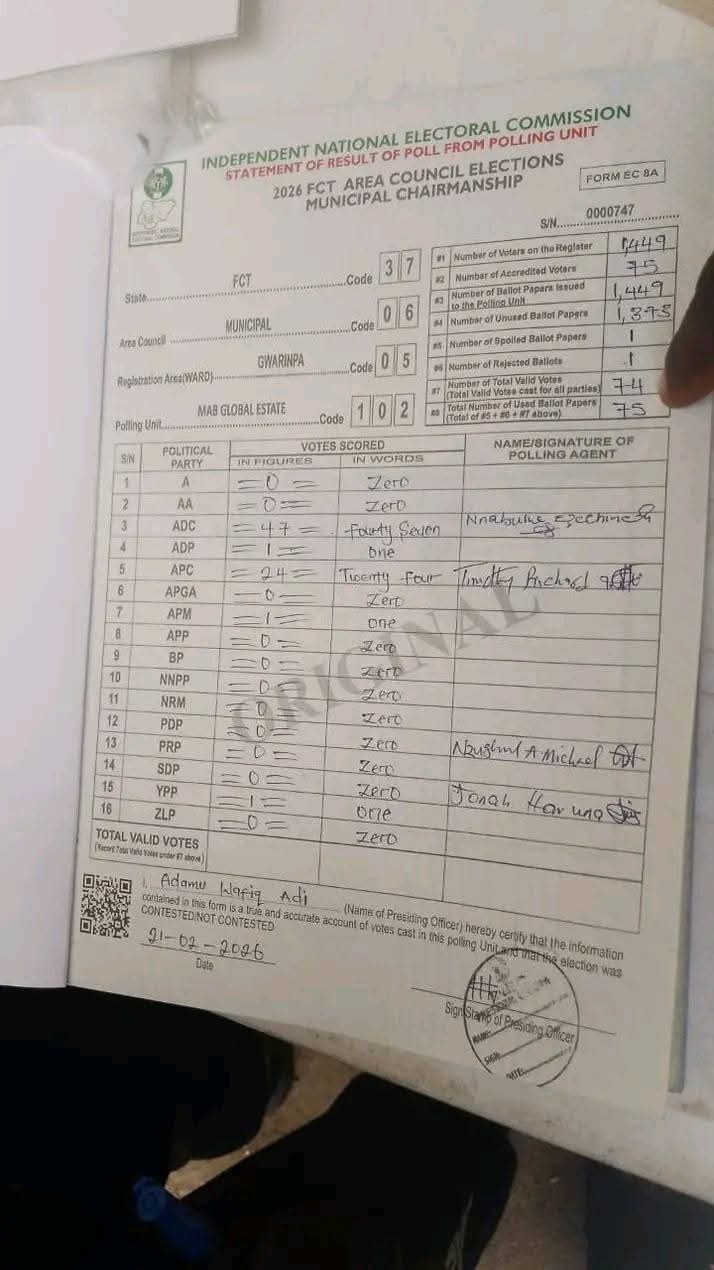 INDEPENDENT NATIONAL ELECTORAL COMMISSION
STATEMENT OF RESULT OF POLL FROM POLLING UNIT
2026 FCT AREA COUNCIL ELECTIONS
MUNICIPAL CHAIRMANSHIP
FORM EC 8A
S/N 0000747
State FCT Code 3 7
Area Council MUNICIPAL Code 0 6
Registration Area(WARD) GWARINPA Code 0 5
Polling Unit MAB GLOBAL ESTATE Code 1 0 2
#1 Number of Voters on the Register 1,449
#2 Number of Accredited Voters 75
#3 Number of Ballot Papers Issued to the Polling Unit 1,449
#4 Number of Unused Ballot Papers 1,373
#5 Number of Spoiled Ballot Papers 1
#6 Number of Rejected Ballots 1
#7 Number of Total Valid Votes (Total Valid Votes cast for all parties) 74
#8 Total Number of Used Ballot Papers (Total of #5 + #6 + #7 above) 75
S/N POLITICAL PARTY VOTES SCORED IN FIGURES IN WORDS NAME/SIGNATURE OF POLLING AGENT
1 A =0= Zero
2 AA =0= Zero
3 ADC =47= Fourty Seven
4 ADP =1= one
5 APC =24= Twenty four Timothy Richard
6 APGA =0= Zero
7 APM =1= one
8 APP =0= Zero
9 BP =0= Zero
10 NNPP =0= Zero
11 NRM =0= Zero
12 PDP =0= Zero
13 PRP =0= Zero A Michael
14 SDP =0= Zero
15 YPP =1= one Jonah Haruna
16 ZLP =0= Zero
TOTAL VALID VOTES
(Record Total Valid Votes under #7 above)
ORIGINAL
I, Adamu Wafiq Adi (Name of Presiding Officer) hereby certify that the information
contained in this form is a true and accurate account of votes cast in this polling Unit and that the election was
CONTESTED/NOT CONTESTED
21-02-2026
Date
Sign/Stamp of Presiding Officer
NAME:
SIGN:
DATE: